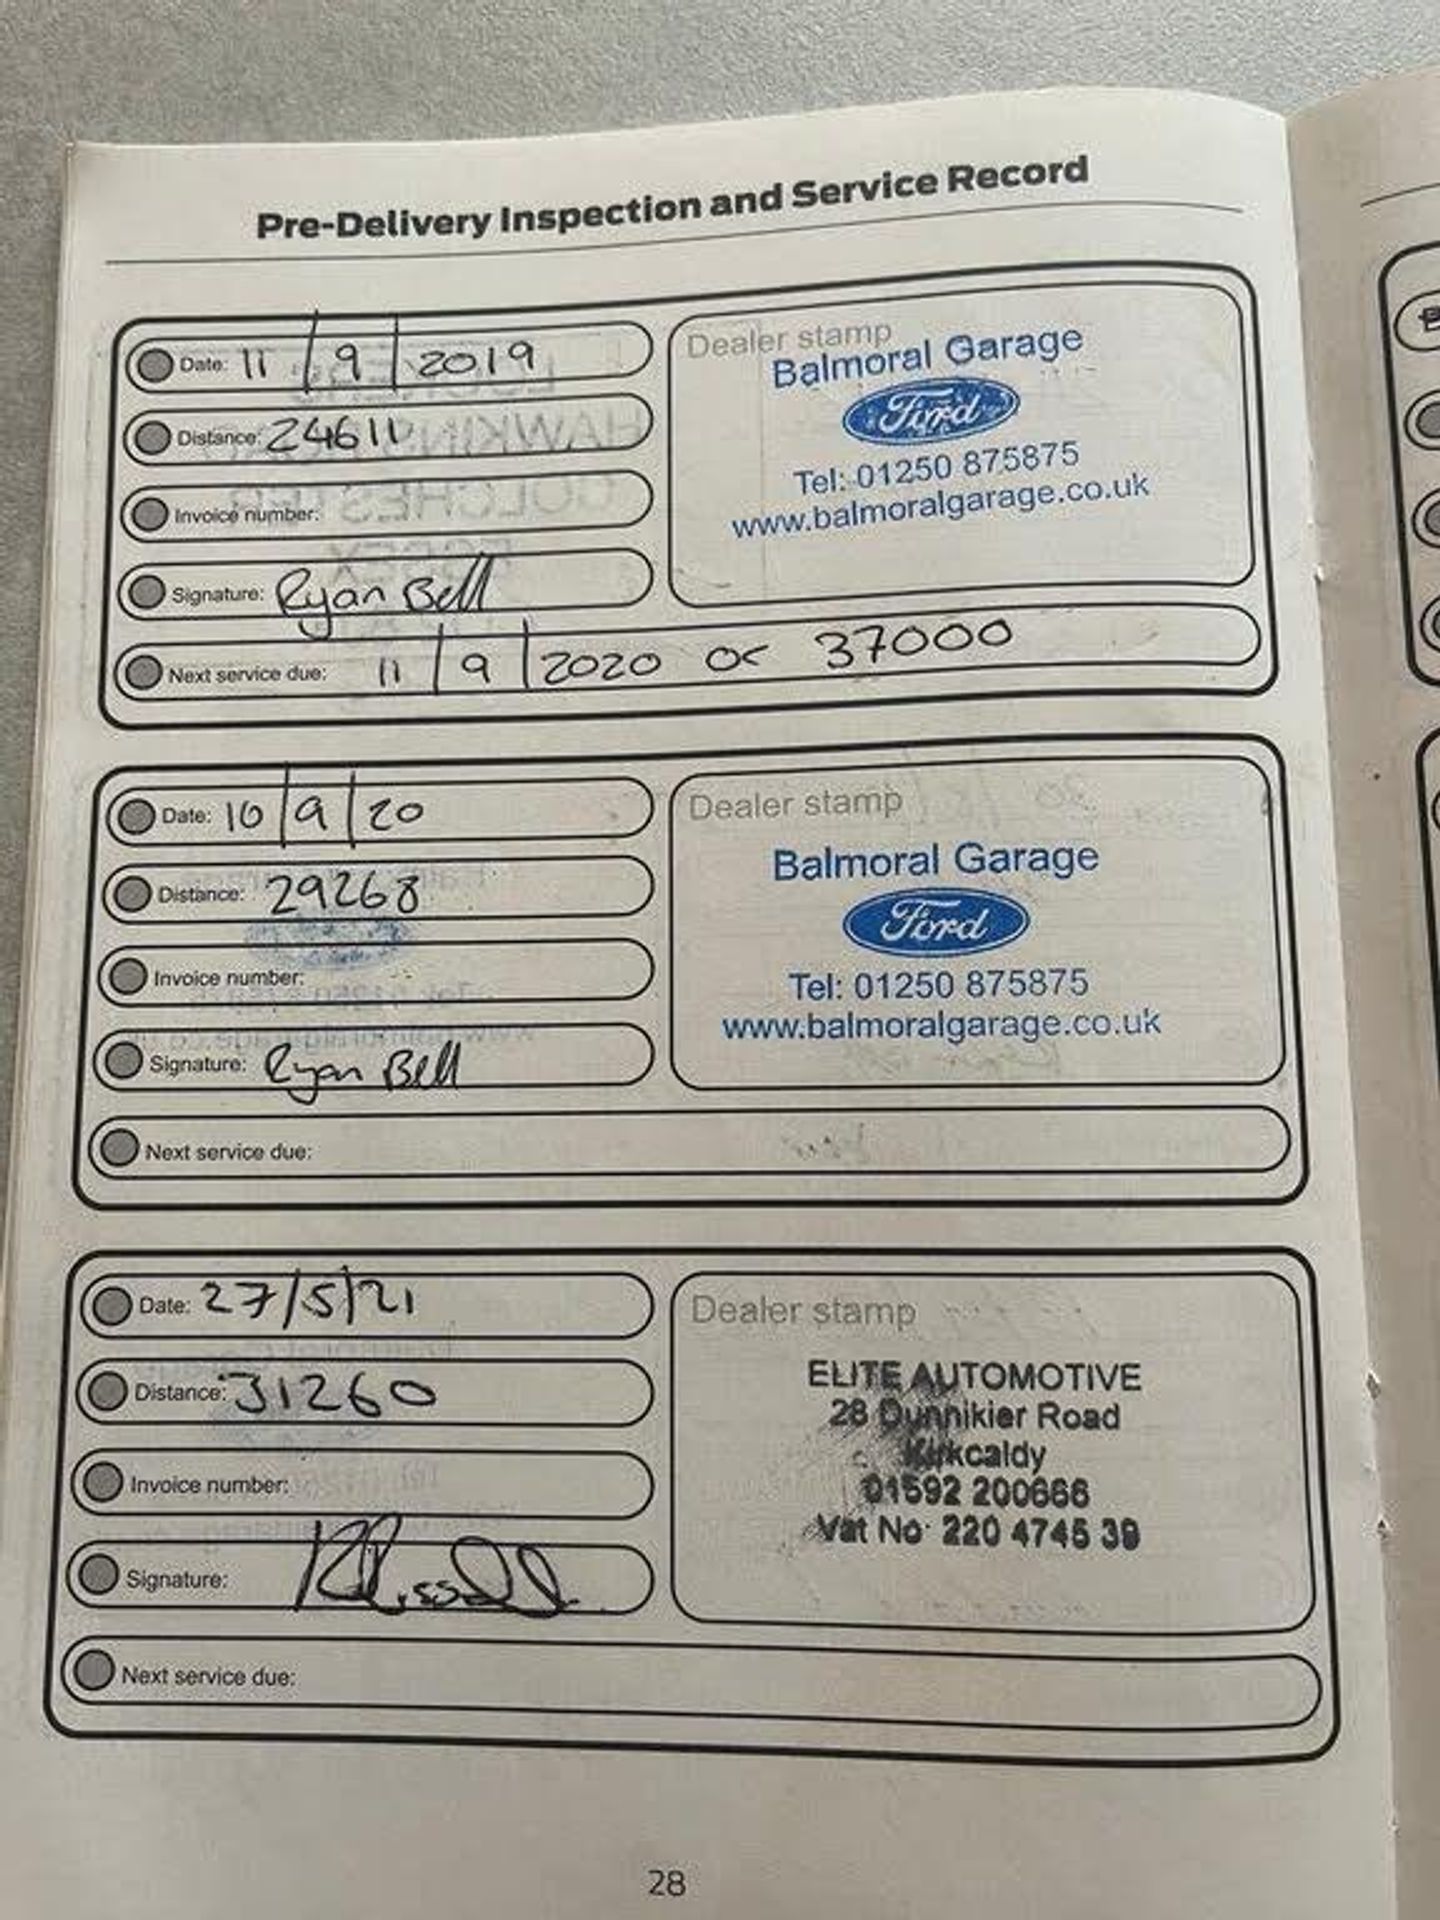 Pre-Delivery Inspection and Service Record
Date: 11/9/2019
Distance: 24611
Invoice number:
Signature: Ryan Bell
Next service due: 11/9/2020 or 37000
Dealer stamp
Balmoral Garage
Ford
Tel: 01250 875875
www.balmoralgarage.co.uk
Date: 10/9/20
Distance: 29268
Invoice number:
Signature: Ryan Bell
Next service due:
Dealer stamp
Balmoral Garage
Ford
Tel: 01250 875875
www.balmoralgarage.co.uk
Date: 27/5/21
Distance: 31260
Invoice number:
Signature:
Next service due:
Dealer stamp
ELITE AUTOMOTIVE
28 Dunnikier Road
Kirkcaldy
01592 200666
Vat No 220 4745 39
28